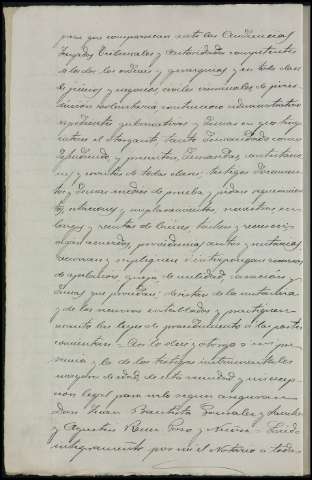 para que comparezca ante las Audiencias
Juzgados Tribunales y autoridades competentes
de todos los ordenes y gerarquias y en toda clase
de juicios y negocios civiles criminales de juris-
diccion voluntaria contencioso administrativo
espedientes gubernativos y demas en que tenga
interes el otorgante tanto demandando como
defendiendo, y presente demandas contestacio-
nes y escritos de todas clases, testigos documen-
tos y demas medios de prueba, y pidan
citaciones y emplazamientos, nuestras em-
bargos y remates de bienes, tachas y recusaci-
oigan acuerdos, providencias autos y sentencias
recurran y supliquen é interpongan recursos
de apelacion queja de nulidad, casacion y
demas que procedan; desistan de la
y de los recursos entablados y practiquen
cuanto las leyes de procedimiento a las partes
consienten. Asi lo dice y otorga a mi pre-
sencia y la de los testigos instrumentales
mayores de edad, de esta vecindad y sin escep-
cion legal para serlo segun aseguran
Don Juan Bautista Gonzalez y
y Agustin Rosa y Leido
integramente por mi el Notario a todos